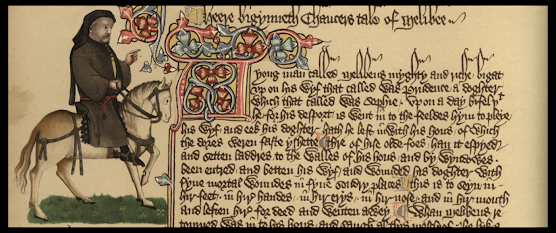 Heere bigynneth Chaucers tale of Melibee
A yong man called Melibeus myghty and riche bigat
vp on his wyf that called was Prudence a doghter
which that called was Sophie / vpon a day bifel yt
he for his desport is went in to the feeldes hym to pleye
his wyf and eek his doghter hath he left inwith his hous of which
the dores weren faste yshette thre of hise olde foes han it espyed
and setten laddres to the walles of his hous and by wyndowes
been entred and betten his wyf and wounded his doghter with
fyue mortal woundes in fyue sondry places this is to seyn in
hir feet in hir handes in hir erys in hir nose and in hir mouth
and leften hir for deed and wenten awey Whan Melibeus re
torned was in to his hous and